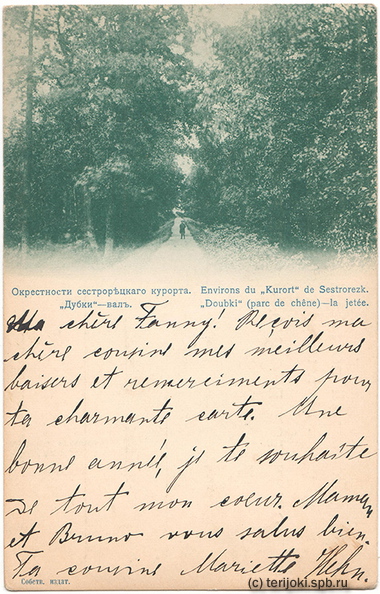 Окрестности сестрорѣцкаго курорта.
„Дубки“—валъ.
Environs du „Kurort“ de Sestrorezk.
„Doubki“ (parc de chêne)—la jetée.
Ma chère Fanny! Reçois ma
chère cousine mes meilleurs
baisers et remerciments pour
ta charmante carte. Une
bonne année, je te souhaite
de tout mon coeur. Maman
et Bruno vous salus bien.
Ta cousine Mariette Hehn.
Собств. издат.
(c) terijoki.spb.ru